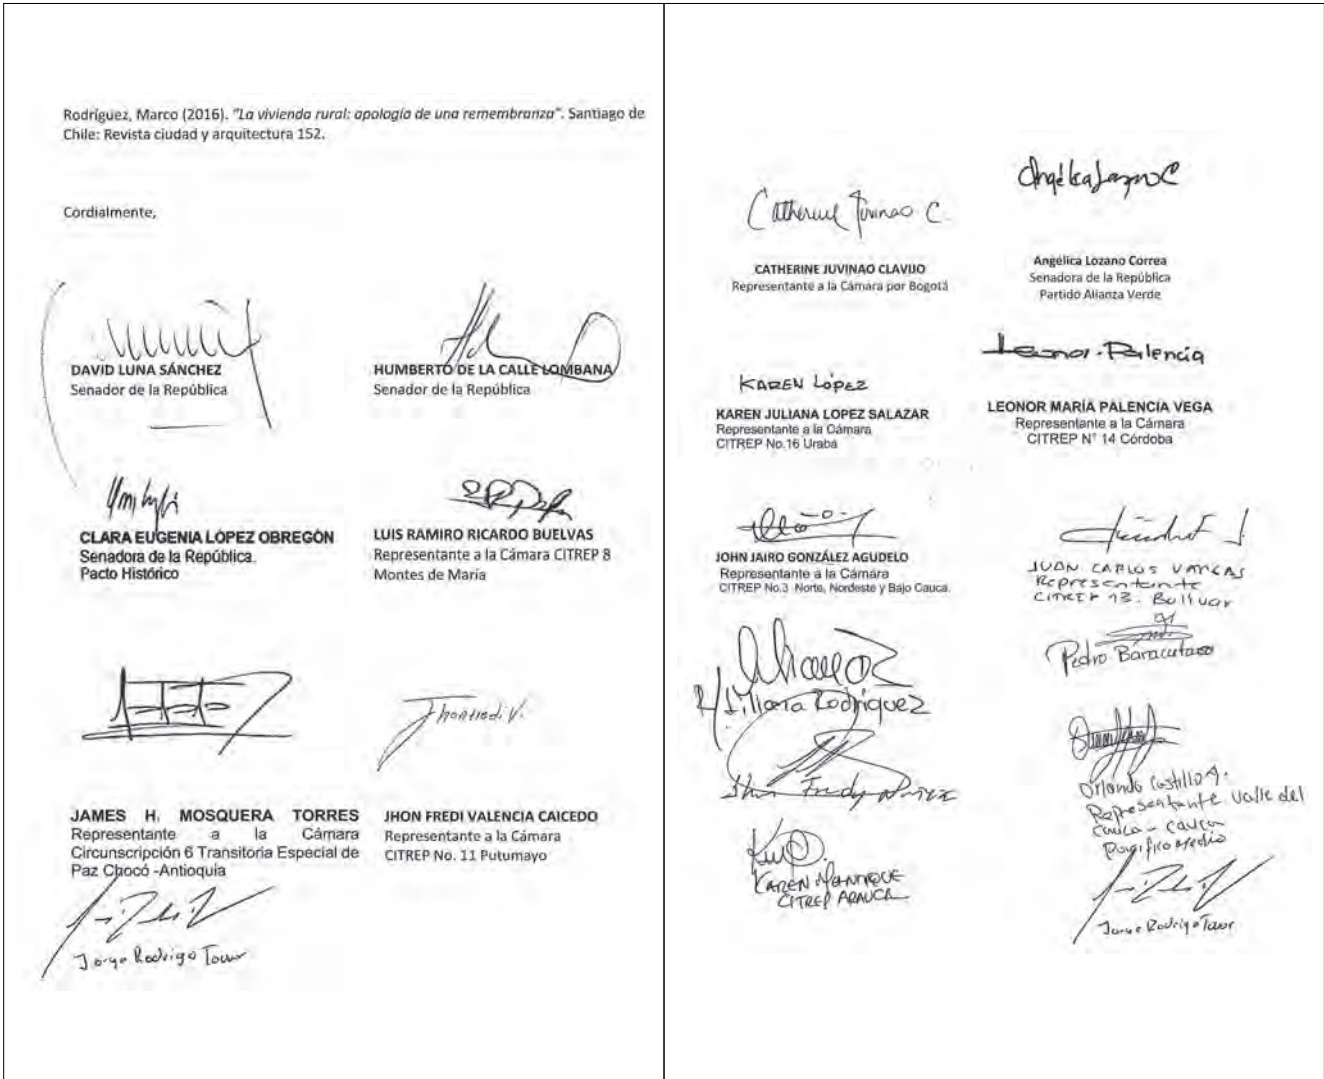 Rodríguez, Marco (2016). "La vivienda rural: apología de una remembranza". Santiago de
Chile: Revista ciudad y arquitectura 152.
Cordialmente,
DAVID LUNA SÁNCHEZ
Senador de la República
HUMBERTO DE LA CALLE LOMBANA
Senador de la República
CLARA EUGENIA LÓPEZ OBREGÓN
Senadora de la República.
Pacto Histórico
LUIS RAMIRO RICARDO BUELVAS
Representante a la Cámara CITREP 8
Montes de María
Jhonfredi V.
JAMES H. MOSQUERA TORRES
Representante a la Cámara
Circunscripción 6 Transitoria Especial de
Paz Chocó -Antioquia
JHON FREDI VALENCIA CAICEDO
Representante a la Cámara
CITREP No. 11 Putumayo
Jorge Rodrigo Tovar
Catherine Juvinao C.
CATHERINE JUVINAO CLAVIJO
Representante a la Cámara por Bogotá
Angélica Lozano C
Angélica Lozano Correa
Senadora de la República
Partido Alianza Verde
KAREN LÓPEZ
KAREN JULIANA LOPEZ SALAZAR
Representante a la Cámara
CITREP No.16 Urabá
Leonor Palencia
LEONOR MARÍA PALENCIA VEGA
Representante a la Cámara
CITREP N° 14 Córdoba
JOHN JAIRO GONZÁLEZ AGUDELO
Representante a la Cámara
CITREP No.3 Norte, Nordeste y Bajo Cauca.
JUAN CARLOS VARGAS
Representante
CITREP 13. Bolívar
Pedro Baracutao
Liliana Rodríguez
Jhon Fredy Núñez
Orlando Castillo A.
Representante Valle del
Cauca - Cauca
Pacífico Medio
KAREN MANRIQUE
CITREP ARAUCA
Jorge Rodrigo Tovar